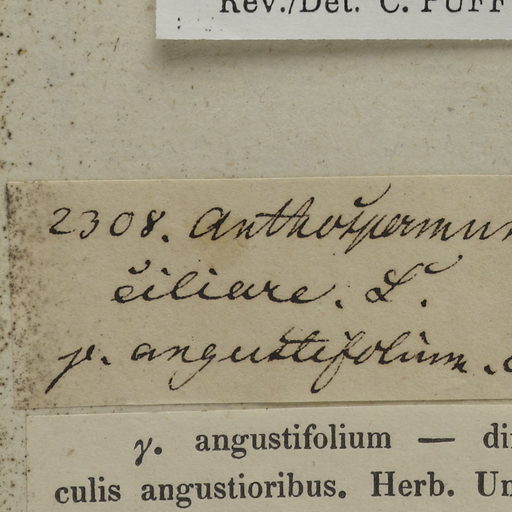 Rev./Det. C. PUFF
2308. Anthospermum
ciliare. L.
γ. angustifolium.
γ. angustifolium —
culis angustioribus. Herb. Un